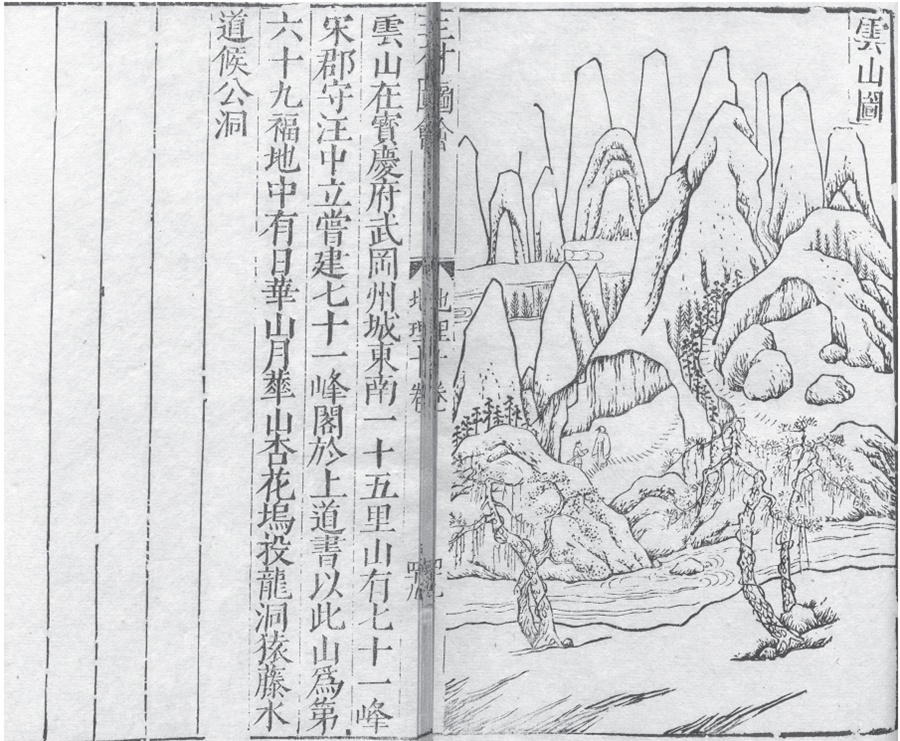 雲山圖
三才圖會
雲山在寳慶府武岡州城東南一十五里山有七十一峰
宋郡守汪中立嘗建七十一峰閣於上道書以此山為第
六十九福地中有日華山月華山杏花塢投龍洞猿藤水
道候公洞